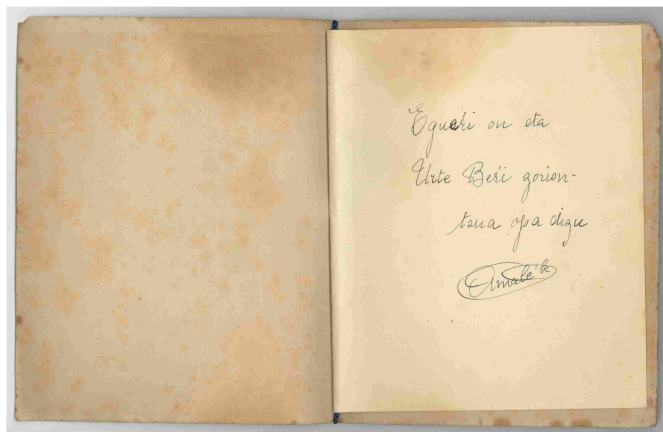 Eguerri on eta
Urte Beŕi zorion-
tsua opa dizu
Amale'k